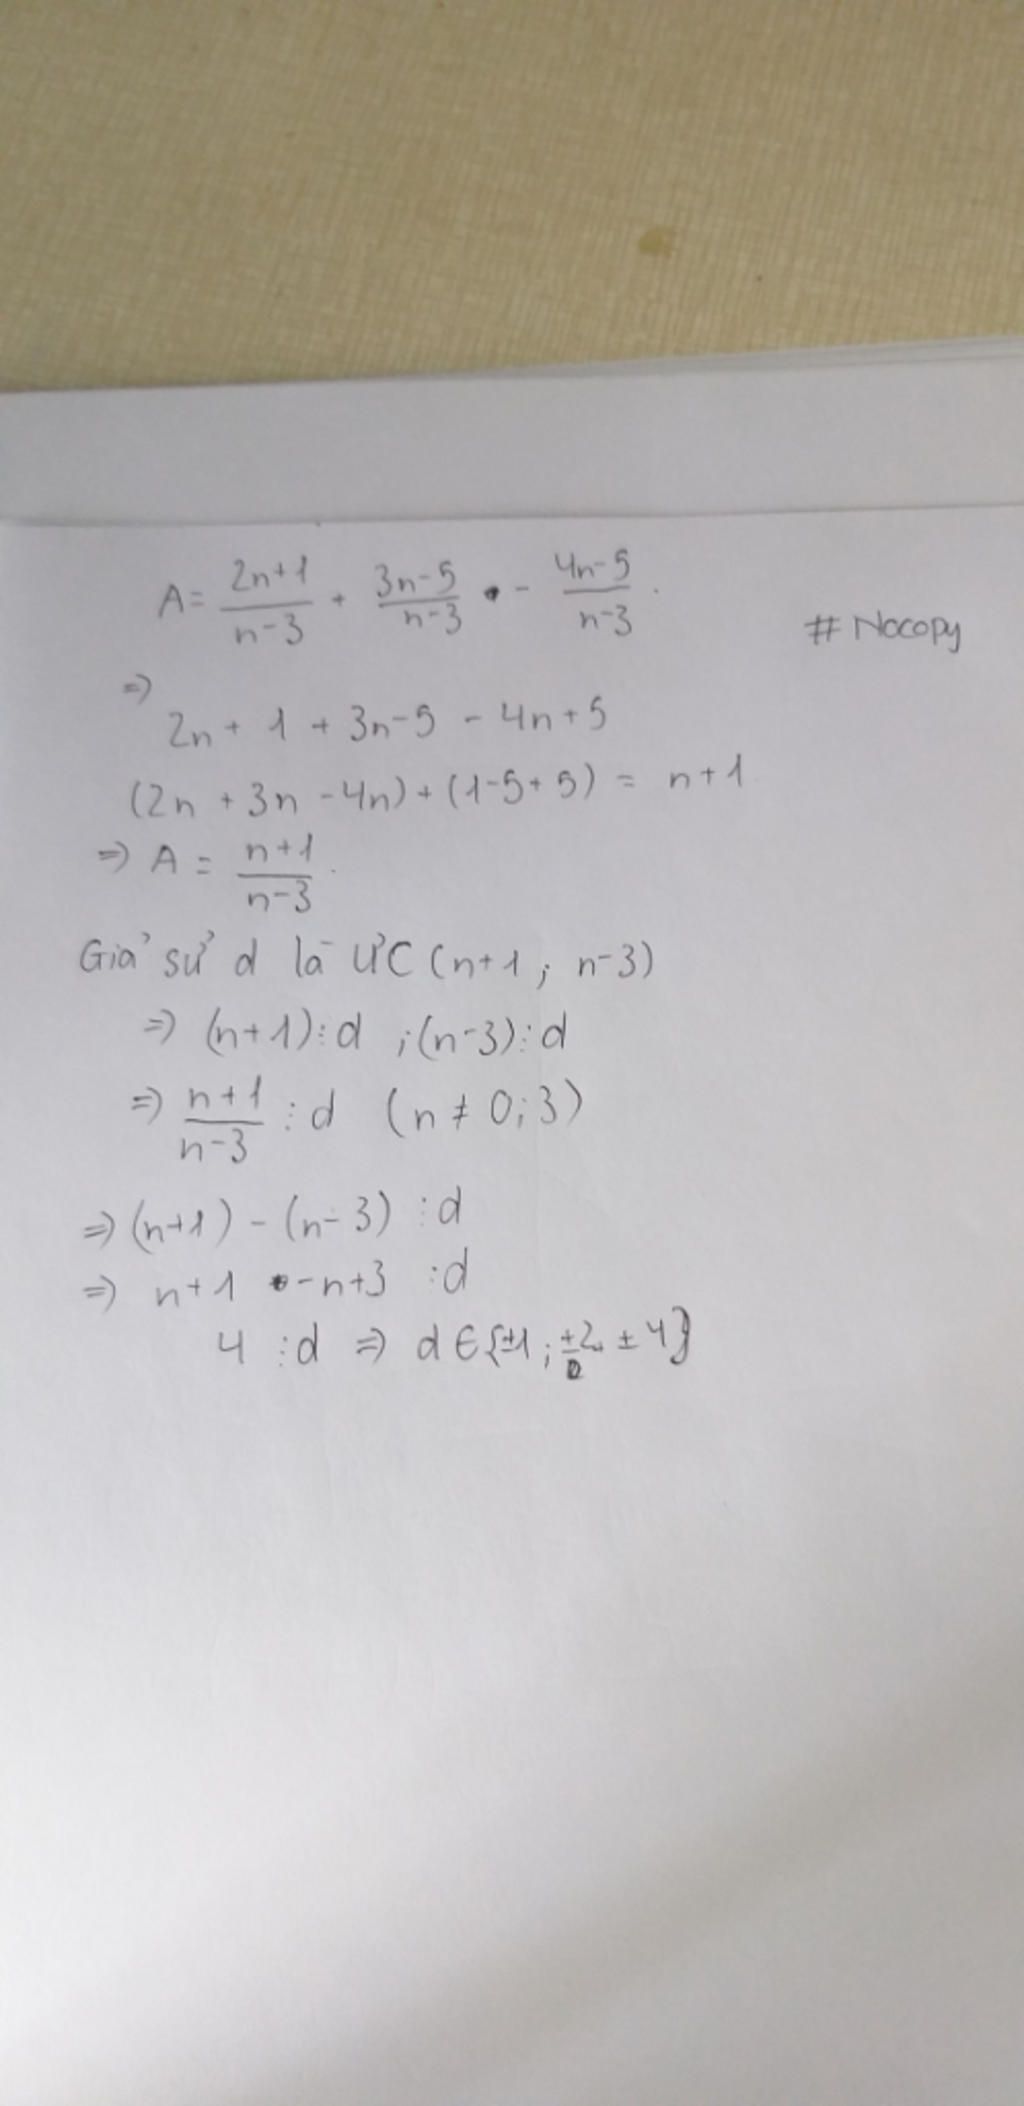 A = \frac{2n+1}{n-3} + \frac{3n-5}{n-3} - \frac{4n-5}{n-3}.
# Nocopy
=>
2n + 1 + 3n-5 - 4n+5
(2n + 3n - 4n) + (1-5+5) = n+1
=> A = \frac{n+1}{n-3}.
Giả sử d là ƯC (n+1; n-3)
=> (n+1)⋮d ; (n-3)⋮d
=> \frac{n+1}{n-3} ⋮d (n ≠ 0;3)
=> (n+1) - (n-3) ⋮d
=> n+1 -n+3 ⋮d
4 ⋮d => d ∈ {±1; ±2, ±4}